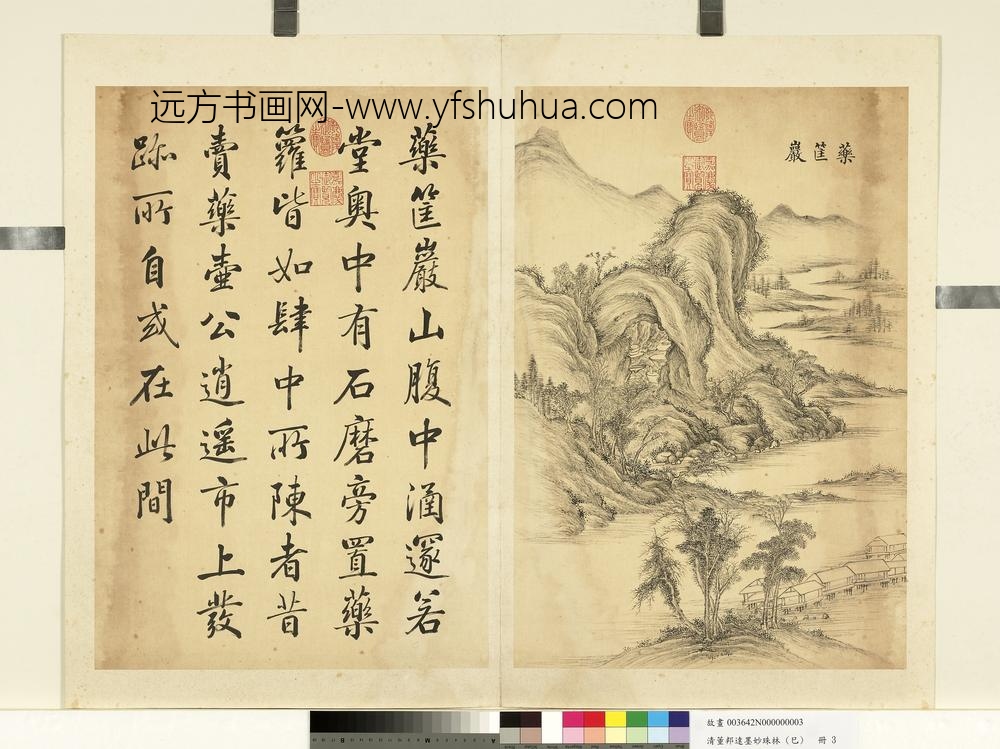 远方书画网-www.yfshuhua.com
藥筐巖
藥筐巖山腹中涵邃若
堂奧中有石磨旁置藥
籮皆如肆中所陳者昔
賣藥壺公逍遥市上發
跡所自或在此間
故畫 003642N000000003
清董邦達墨妙珠林(巳) 冊 3